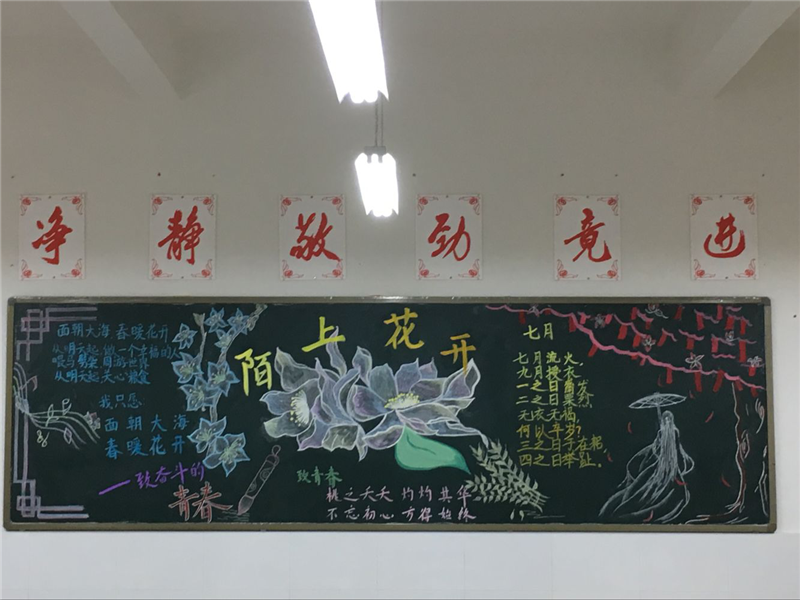 净 静 敬 劲 竟 进
陌上花开
面朝大海 春暖花开
从明天起 做一个幸福的人
喂马 劈柴 周游世界
从明天起 关心粮食
我只愿
面朝大海
春暖花开
一致奋斗的
青春
致青春
桃之夭夭 灼灼其华
不忘初心 方得始终
七月
七月流火
九月授衣
一之日觱发
二之日栗烈
无衣无褐
何以卒岁?
三之日于耜
四之日举趾。